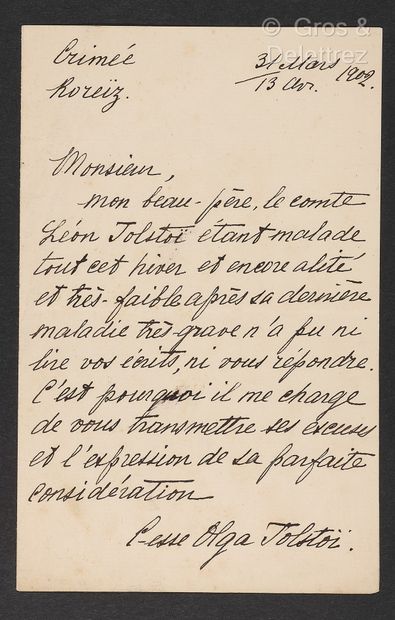 © Gros &
Delettrez
Crimée
Koreïz.
31 Mars
13 Avr. 1902.
Monsieur,
mon beau-père, le comte
Léon Tolstoï étant malade
tout cet hiver et encore alité
et très-faible après sa dernière
maladie très-grave n'a pu ni
lire vos écrits, ni vous répondre.
C'est pourquoi il me charge
de vous transmettre ses excuses
et l'expression de sa parfaite
considération
C-esse Olga Tolstoï.